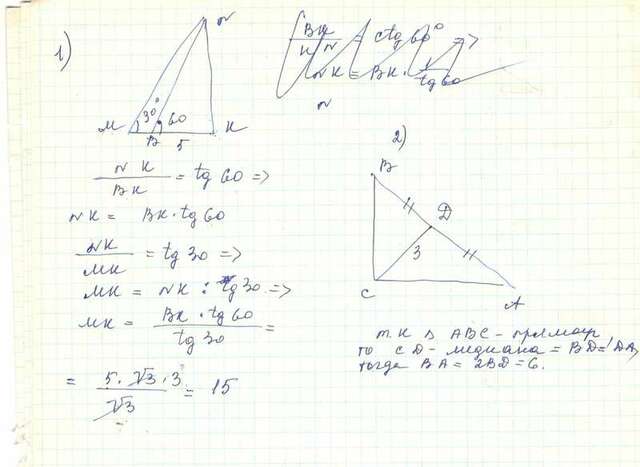 1)
N
30°
60
M
B
5
K
NK / BK = tg 60 =>
NK = BK · tg 60
NK / MK = tg 30 =>
MK = NK : tg 30 =>
MK = BK · tg 60 / tg 30 =
= 5 · √3 · 3 / √3 = 15
BK / KN = ctg 60° =>
NK = BK · 1 / tg 60
N
2)
B
D
3
C
A
т.к Δ ABC - прямоуг
то CD - медиана = BD = DA,
тогда BA = 2BD = 6.